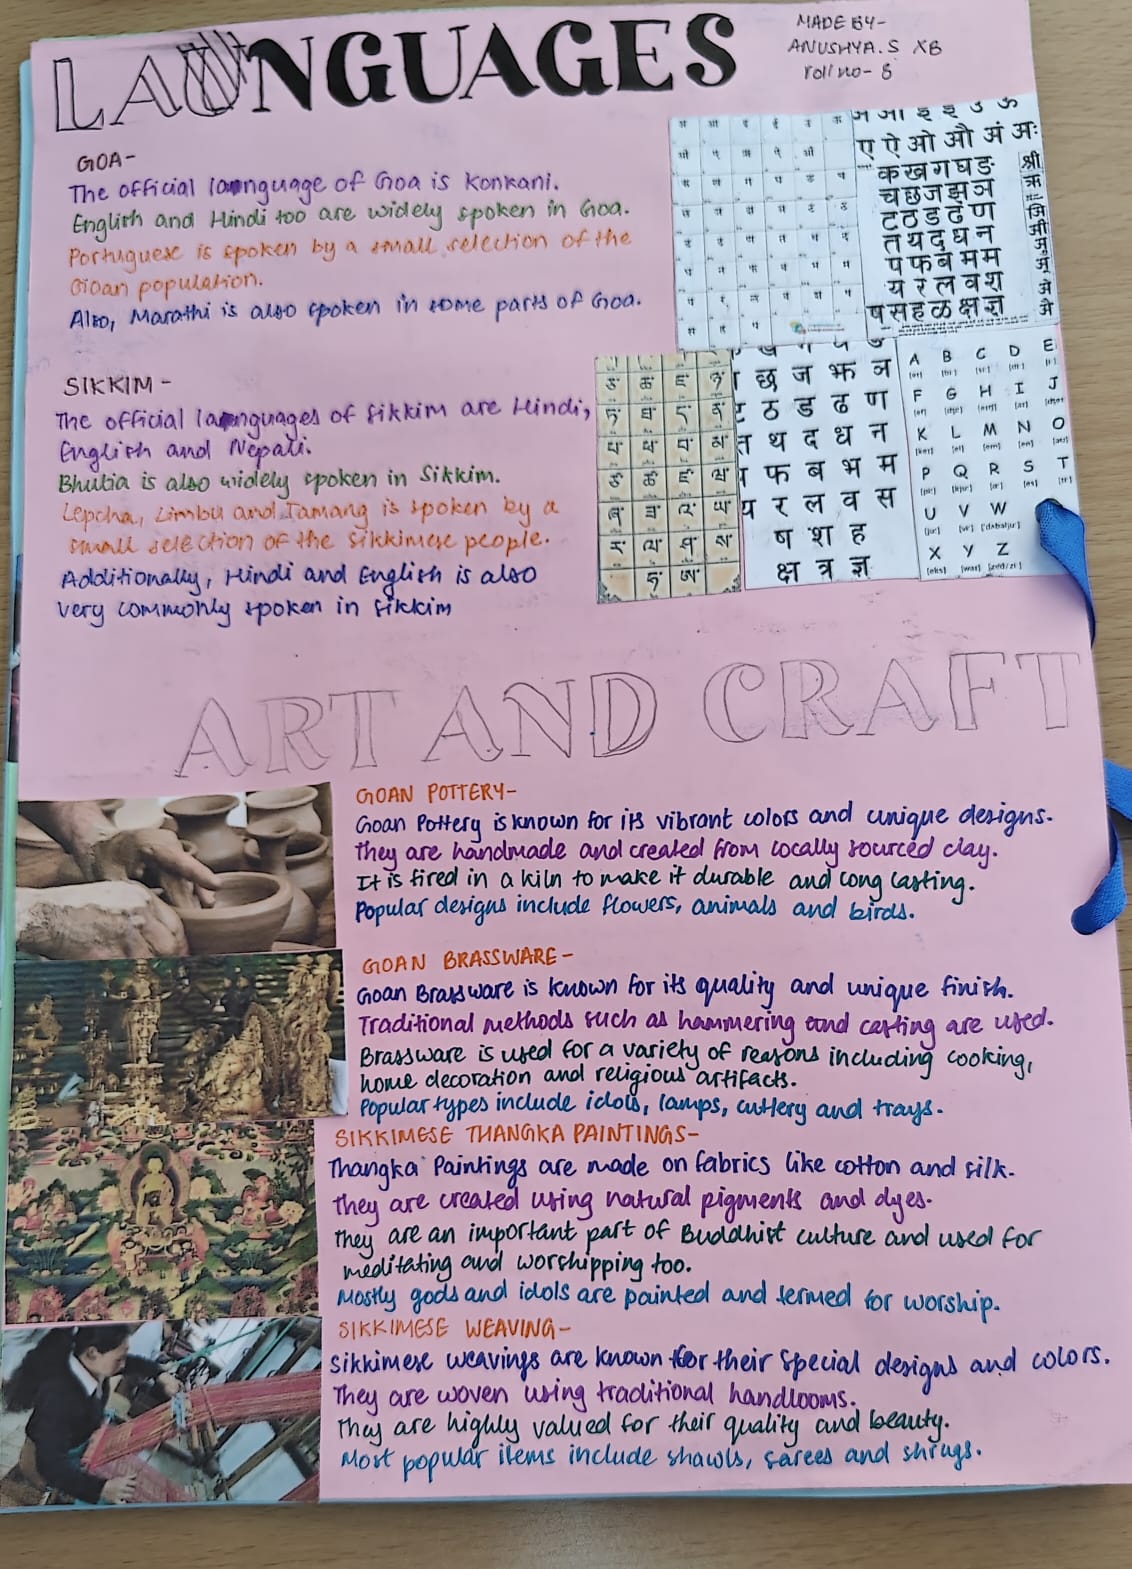 LANGUAGES
MADE BY-
ANUSHYA.S XB
roll no- 8
GOA-
The official language of Goa is Konkani.
English and Hindi too are widely spoken in Goa.
Portuguese is spoken by a small selection of the
Goan population.
Also, Marathi is also spoken in some parts of Goa.
ए ऐ ओ औ अं अः
क ख ग घ ङ
च छ ज झ ञ
ट ठ ड ढ ण
त थ द ध न
य र ल व श
ष स ह ळ क्ष ज्ञ
श्री
SIKKIM -
The official languages of Sikkim are Hindi,
English and Nepali.
Bhutia is also widely spoken in Sikkim.
Lepcha, Limbu and Tamang is spoken by a
small selection of the Sikkimese people.
Additionally, Hindi and English is also
very commonly spoken in Sikkim
छ ज झ ञ
ठ ड ढ ण
त थ द ध न
फ ब भ म
य र ल व स
ष श ह
क्ष त्र ज्ञ
A B C D E
F G H I J
K L M N O
P Q R S T
U V W
X Y Z
ART AND CRAFT
GOAN POTTERY-
Goan Pottery is known for its vibrant colors and unique designs.
They are handmade and created from locally sourced clay.
It is fired in a kiln to make it durable and long lasting.
Popular designs include flowers, animals and birds.
GOAN BRASSWARE-
Goan Brassware is known for its quality and unique finish.
Traditional methods such as hammering and casting are used.
Brassware is used for a variety of reasons including cooking,
home decoration and religious artifacts.
Popular types include idols, lamps, cutlery and trays.
SIKKIMESE THANGKA PAINTINGS-
Thangka Paintings are made on fabrics like cotton and silk.
They are created using natural pigments and dyes.
They are an important part of Buddhist culture and used for
meditating and worshipping too.
Mostly gods and idols are painted and termed for worship.
SIKKIMESE WEAVING-
Sikkimese weavings are known for their special designs and colors.
They are woven using traditional handlooms.
They are highly valued for their quality and beauty.
Most popular items include shawls, sarees and shrugs.